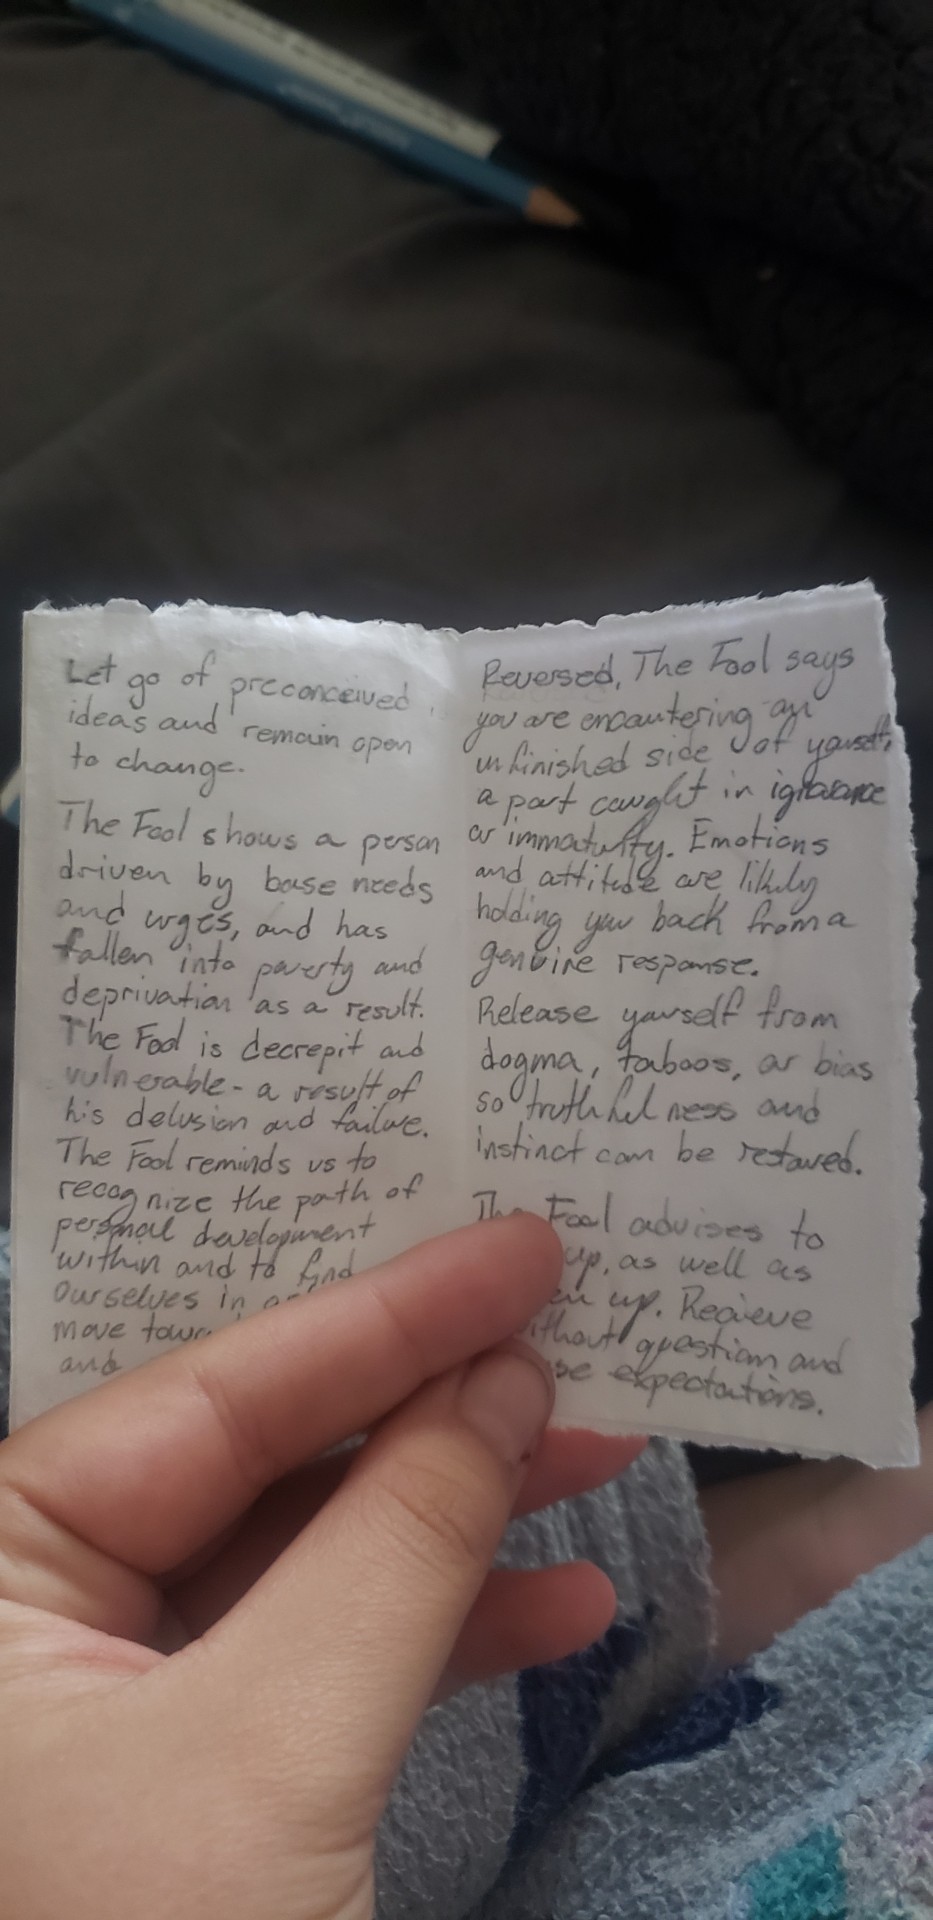 Let go of preconceived
ideas and remain open
to change.
The Fool shows a person
driven by base needs
and urges, and has
fallen into poverty and
deprivation as a result.
The Fool is decrepit and
vulnerable - a result of
his delusion and failure.
The Fool reminds us to
recognize the path of
personal development
within and to find
ourselves in
move
and
Reversed, The Fool says
you are encountering an
unfinished side of yourself,
a part caught in ignorance
or immaturity. Emotions
and attitude are likely
holding you back from a
genuine response.
Release yourself from
dogma, taboos, or bias
so truthfulness and
instinct can be restored.
The Fool advises to
up, as well as
up. Recieve
without question and
expectations.